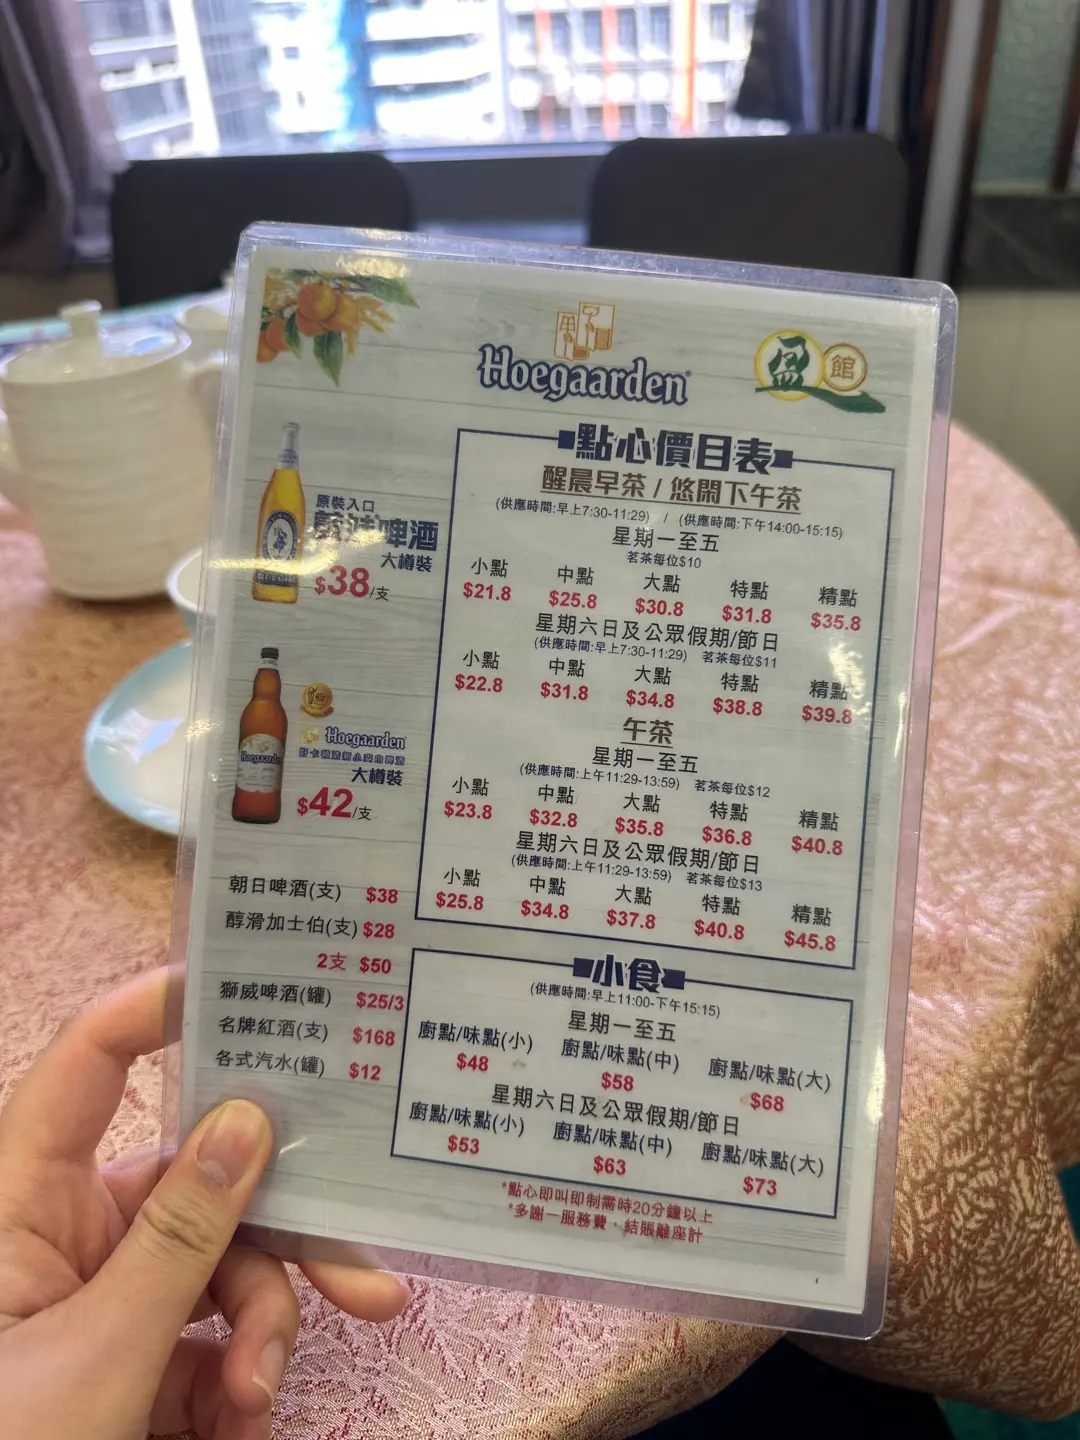 Hoegaarden
盈館
點心價目表
醒晨早茶 / 悠閑下午茶
(供應時間:早上7:30-11:29) / (供應時間:下午14:00-15:15)
星期一至五
茗茶每位$10
小點 中點 大點 特點 精點
$21.8 $25.8 $30.8 $31.8 $35.8
星期六日及公眾假期/節日
(供應時間:早上7:30-11:29) 茗茶每位$11
小點 中點 大點 特點 精點
$22.8 $31.8 $34.8 $38.8 $39.8
午茶
星期一至五
(供應時間:上午11:29-13:59) 茗茶每位$12
小點 中點 大點 特點 精點
$23.8 $32.8 $35.8 $36.8 $40.8
星期六日及公眾假期/節日
(供應時間:上午11:29-13:59) 茗茶每位$13
小點 中點 大點 特點 精點
$25.8 $34.8 $37.8 $40.8 $45.8
小食
(供應時間:早上11:00-下午15:15)
星期一至五
廚點/味點(小) 廚點/味點(中) 廚點/味點(大)
$48 $58 $68
星期六日及公眾假期/節日
廚點/味點(小) 廚點/味點(中) 廚點/味點(大)
$53 $63 $73
*點心即叫即制需時20分鐘以上
*多謝一服務費，結賬離座計
原裝入口
啤酒
大樽裝
$38/支
Hoegaarden
Hoegaarden
大樽裝
$42/支
朝日啤酒(支) $38
醇滑加士伯(支) $28
2支 $50
獅威啤酒(罐) $25/3
名牌紅酒(支) $168
各式汽水(罐) $12